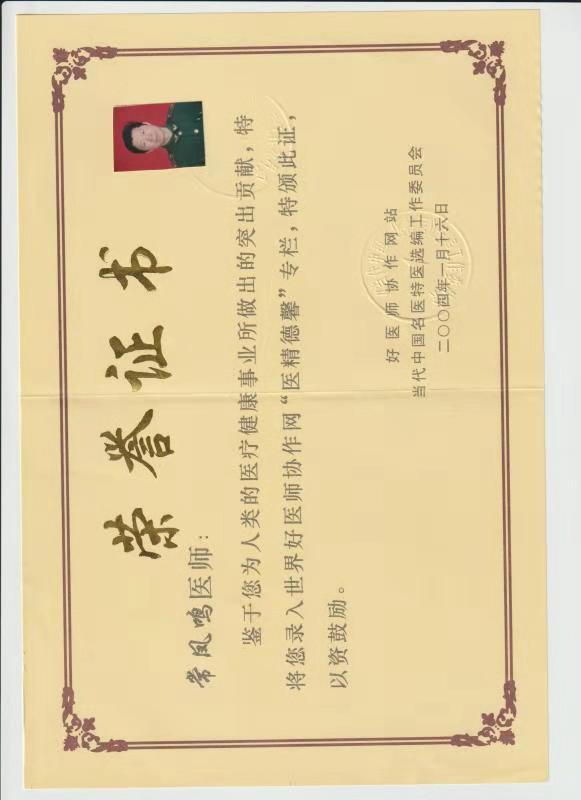 荣誉证书
常凤鸣医师：
鉴于您为人类的医疗健康事业所做出的突出贡献，特
将您录入世界好医师协作网“医精德馨”专栏，特颁此证，
以资鼓励。
好医师协作网站
当代中国名医特医选编工作委员会
二〇〇四年一月十六日